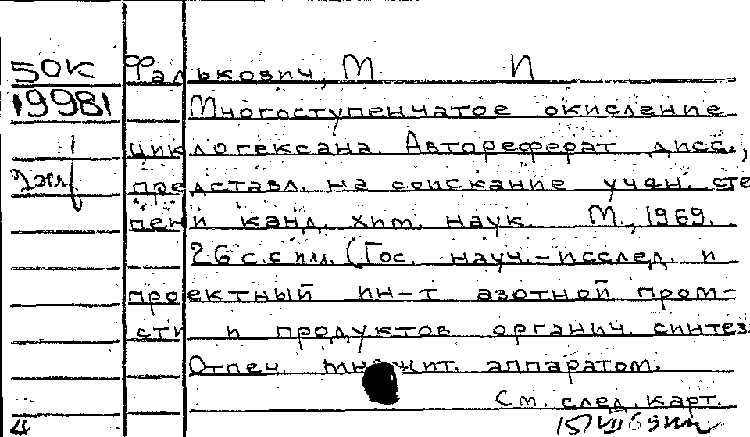 50К Фалькович, М И
19981 Многоступенчатое окисление
циклогексана. Автореферат дисс.,
представл. на соискание учен. сте
пени канд. хим. наук. М., 1969.
26 с. с ил. (Гос. науч.-исслед. и
проектный ин-т азотной пром-
сти и продуктов органич. синтез
Отпеч. множит. аппаратом.
См. след. карт.